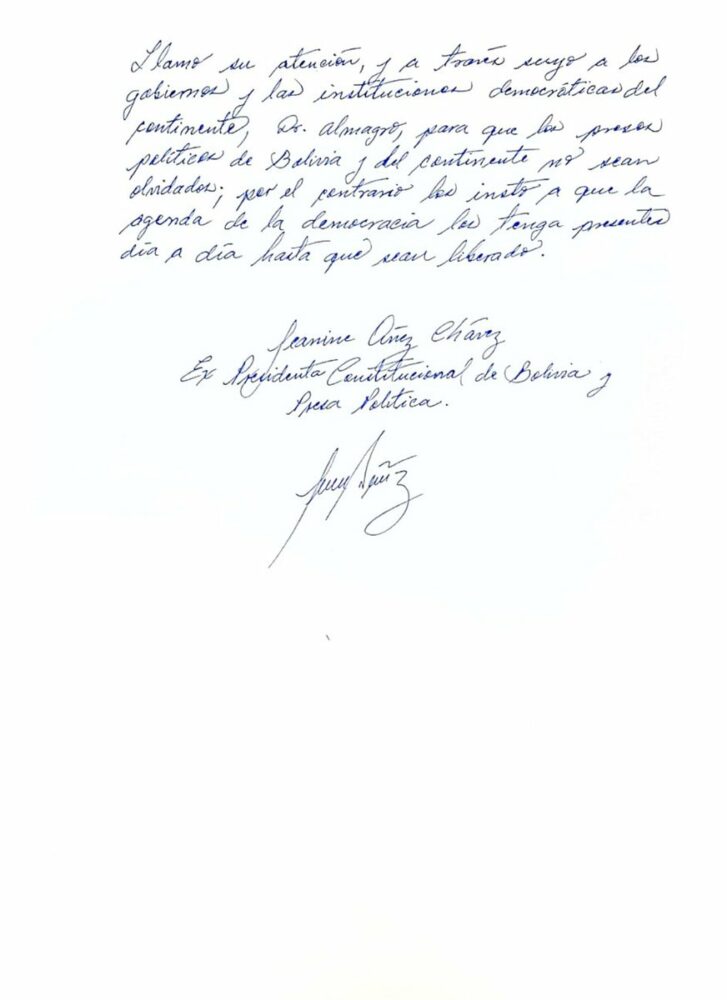 Llamo su atención, y a través suyo a los
gobiernos y las instituciones democráticas del
continente, Dr. Almagro, para que los presos
políticos de Bolivia y del continente no sean
olvidados; por el contrario los insto a que la
agenda de la democracia los tenga presentes
día a día hasta que sean liberado.
Jeanine Añez Chávez
Ex Presidenta Constitucional de Bolivia y
Presa Política.